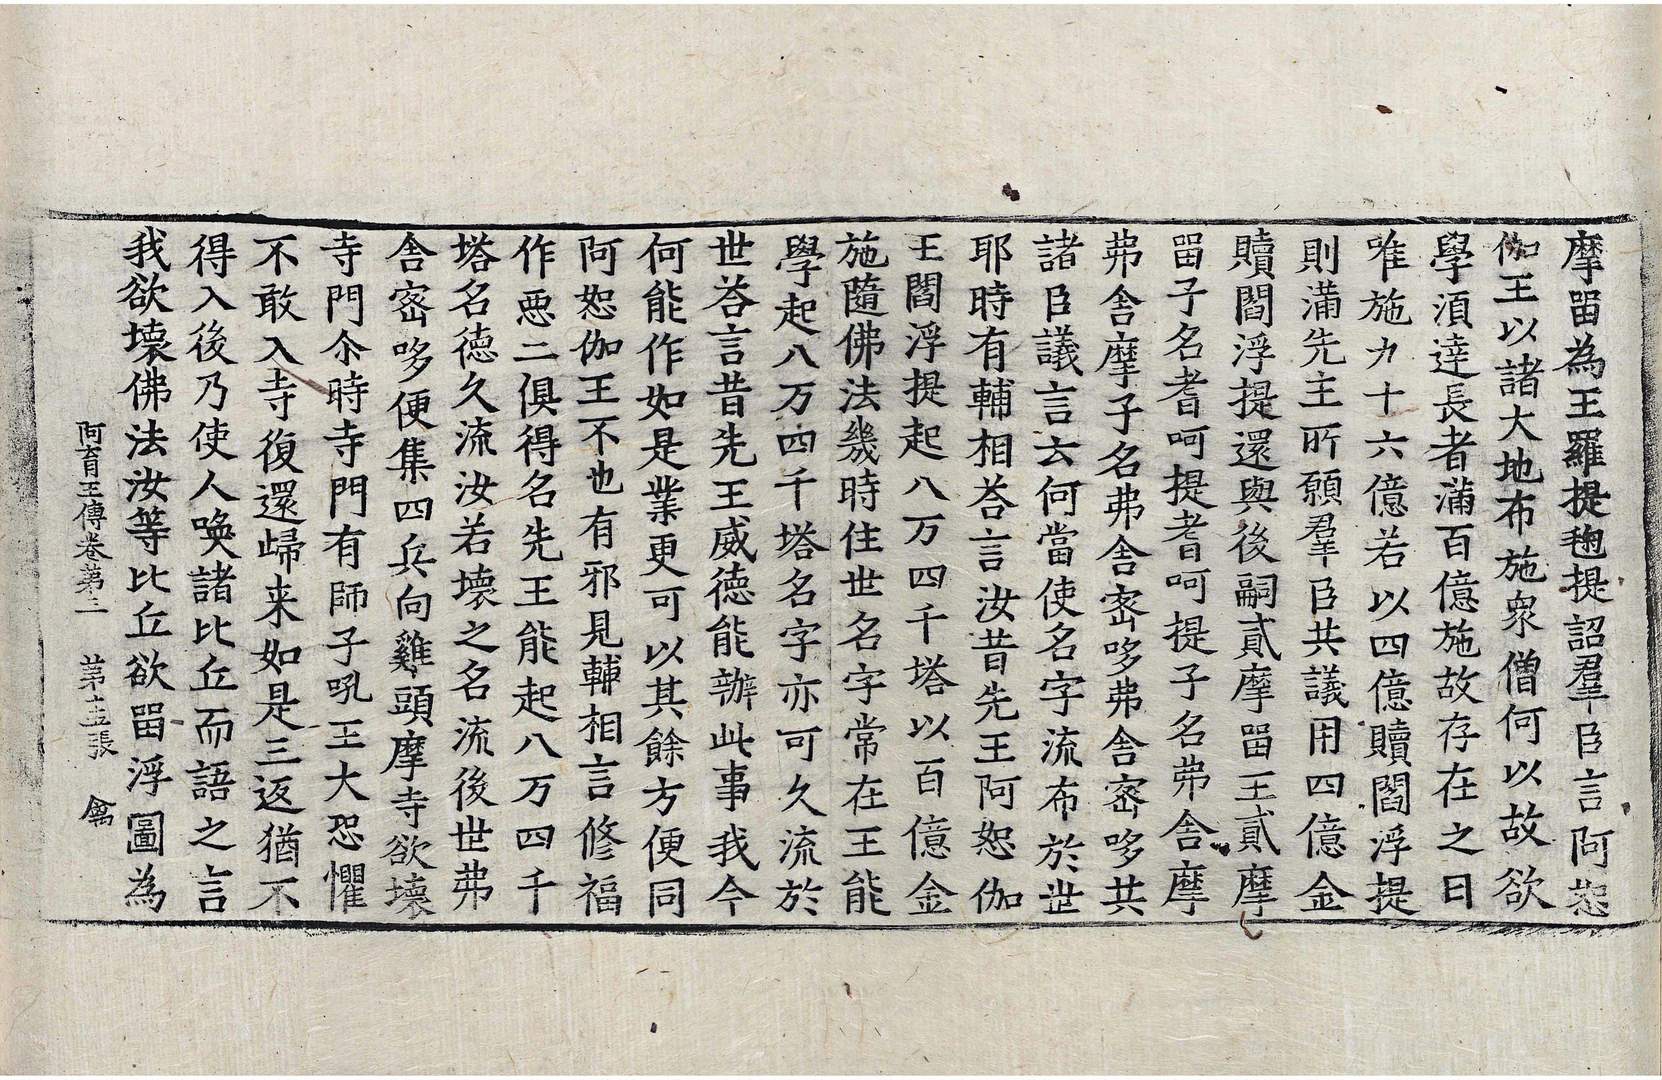 摩畱為王羅提毱提詔羣臣言阿恕
伽王以諸大地布施衆僧何以故欲
學湏達長者滿百億施故存在之日
唯施九十六億若以四億贖閻浮提
則滿先主所願羣臣共議用四億金
贖閻浮提還與後嗣貳摩畱王貳摩
畱子名耆呵提耆呵提子名弗舍摩
弗舍摩子名弗舍宻哆弗舍宻哆共
諸臣議言云何當使名字流布於世
耶時有輔相荅言汝昔先王阿恕伽
王閻浮提起八万四千塔以百億金
施隨佛法幾時住世名字常在王能
學起八万四千塔名字亦可久流於
世荅言昔先王威德能辦此事我今
何能作如是業更可以其餘方便同
阿恕伽王不也有邪見輔相言修福
作悪二俱得名先王能起八万四千
塔名德久流汝若壊之名流後世弗
舍宻哆便集四兵向雞頭摩寺欲壊
寺門尒時寺門有師子吼王大恐懼
不敢入寺復還歸来如是三返猶不
得入後乃使人喚諸比丘而語之言
我欲壊佛法汝等比丘欲畱浮圖為
阿育王傳卷第三　第十五張　禽